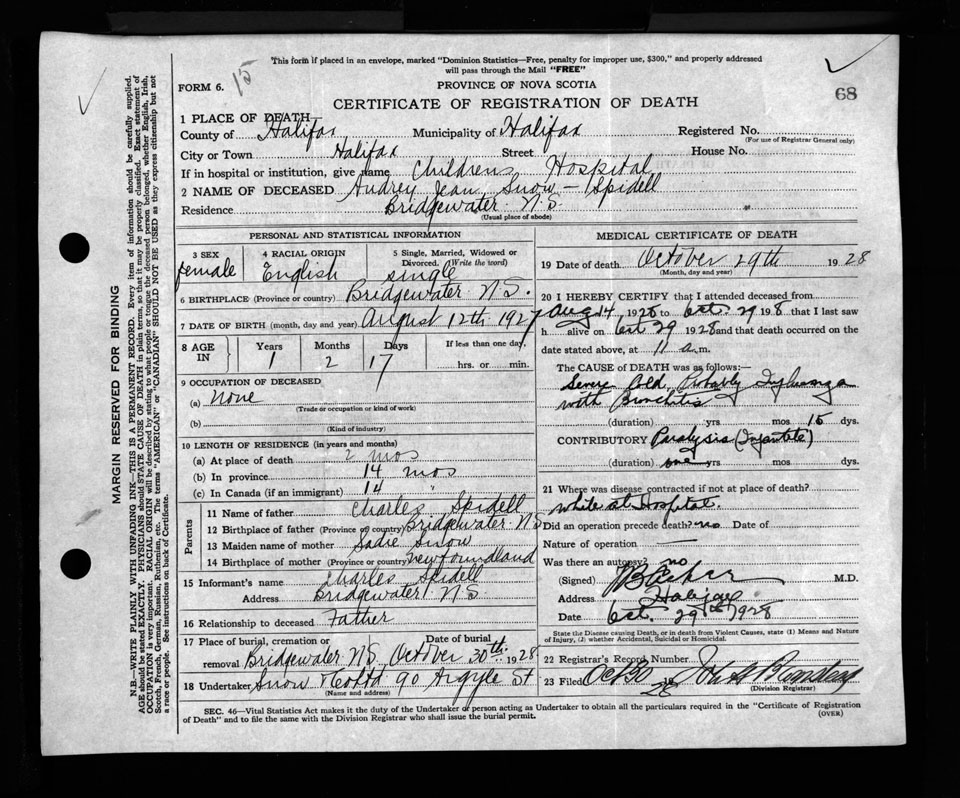 This form if placed in an envelope, marked "Dominion Statistics—Free, penalty for improper use, $300," and properly addressed
will pass through the Mail "FREE"
FORM 6.
15
PROVINCE OF NOVA SCOTIA
68
CERTIFICATE OF REGISTRATION OF DEATH
1 PLACE OF DEATH
County of Halifax Municipality of Halifax Registered No.
(For use of Registrar General only)
City or Town Halifax Street House No.
If in hospital or institution, give name Childrens Hospital
2 NAME OF DECEASED Audrey Jean Snow - Spidell
Residence Bridgewater N.S.
(Usual place of abode)
PERSONAL AND STATISTICAL INFORMATION
3 SEX 4 RACIAL ORIGIN 5 Single, Married, Widowed or
Divorced. (Write the word)
female English single
6 BIRTHPLACE (Province or country) Bridgewater N.S.
7 DATE OF BIRTH (month, day and year) August 12th 1927
8 AGE IN Years Months Days If less than one day,
1 2 17 hrs. or min.
9 OCCUPATION OF DECEASED
(a) None
(Trade or occupation or kind of work)
(b)
(Kind of industry)
10 LENGTH OF RESIDENCE (in years and months)
(a) At place of death 2 mos
(b) In province 14 mos
(c) In Canada (if an immigrant) 14 "
Parents
11 Name of father Charles Spidell
12 Birthplace of father (Province or country) Bridgewater N.S
13 Maiden name of mother Sadie Snow
14 Birthplace of mother (Province or country) Newfoundland
15 Informant's name Charles Spidell
Address Bridgewater N.S
16 Relationship to deceased Father
17 Place of burial, cremation or Date of burial
removal Bridgewater N.S. October 30th 1928
18 Undertaker Snow & Co Ltd 90 Argyle St
(Name and address)
MEDICAL CERTIFICATE OF DEATH
19 Date of death October 29th 1928
(Month, day and year)
20 I HEREBY CERTIFY that I attended deceased from
Aug 14, 1928 to Oct. 29 1928 that I last saw
h alive on Oct 29 1928 and that death occurred on
date stated above, at 11 a.m.
The CAUSE of DEATH was as follows:—
Severe Cold, Probably Influenza
with Bronchitis
(duration) yrs mos 15 dys.
CONTRIBUTORY Paralysis (Infantile)
(duration) one yrs mos dys.
21 Where was disease contracted if not at place of death?
while at Hospital.
Did an operation precede death? no Date of
Nature of operation
Was there an autopsy? no
(Signed) M.D.
Address Halifax
Date Oct. 29th 1928
State the Disease causing Death, or in death from Violent Causes, state (1) Means and Nature
of Injury, (2) whether Accidental, Suicidal or Homicidal.
22 Registrar's Record Number
23 Filed Oct 30 28
(Division Registrar)
SEC. 46—Vital Statistics Act makes it the duty of the Undertaker or person acting as Undertaker to obtain all the particulars required in the "Certificate of Registration
of Death" and to file the same with the Division Registrar who shall issue the burial permit.
(OVER)
MARGIN RESERVED FOR BINDING
N.B.—WRITE PLAINLY WITH UNFADING INK—THIS IS A PERMANENT RECORD. Every item of information should be carefully supplied.
AGE should be stated EXACTLY. PHYSICIANS should STATE CAUSE OF DEATH in plain terms, so that it may be properly classified. Exact statement of
OCCUPATION is very important. RACIAL ORIGIN will be described by stating to what people or tongue the deceased person belonged, whether English, Irish,
Scotch, French, German, Russian, Ruthenian, etc. The terms "AMERICAN" or "CANADIAN" SHOULD NOT BE USED as they express citizenship but not
a race or people. See instructions on back of Certificate.